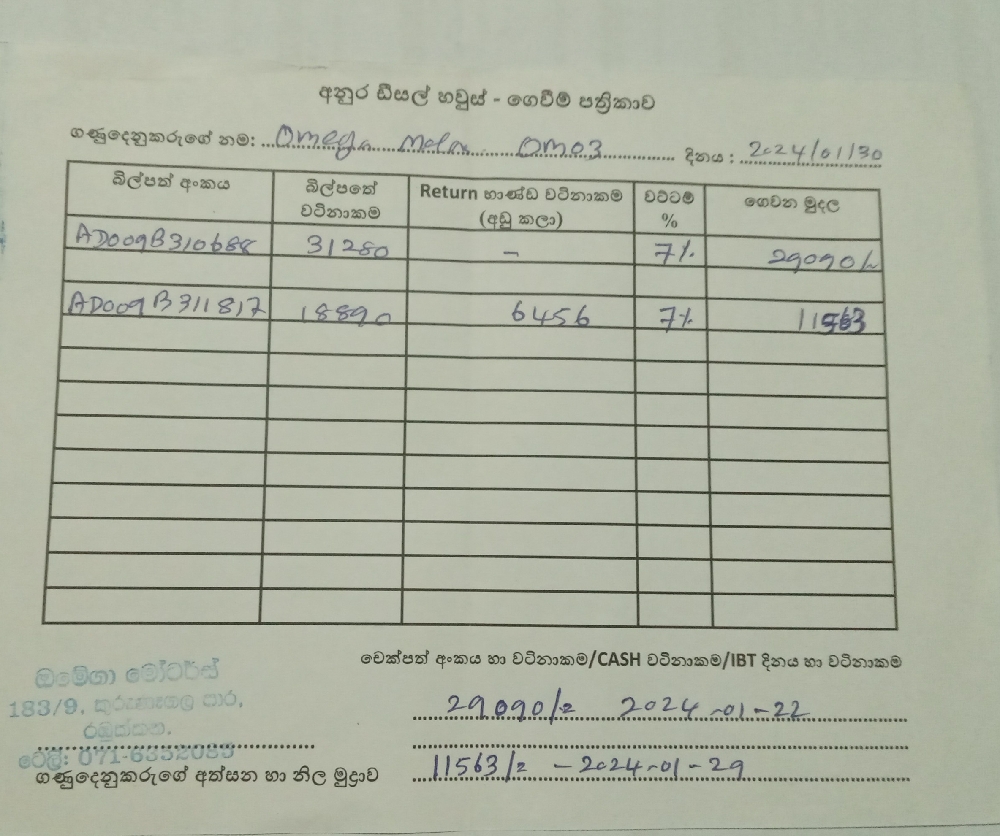 අනුර ඩීසල් හවුස් - ගෙවීම් පත්‍රිකාව
ගණුදෙනුකරුගේ නම: Omega OM03 දිනය : 2024/01/30
බිල්පත් අංකය බිල්පතේ වටිනාකම Return භාණ්ඩ වටිනාකම (අඩු කලා) වට්ටම් % ගෙවන මුදල
AD009B310688 31280 - 7% 29090/-
AD009B311817 18890 6456 7% 11563
චෙක්පත් අංකය හා වටිනාකම/CASH වටිනාකම/IBT දිනය හා වටිනාකම
ඔමේගා මෝටර්ස්
183/9, කුරුණෑගල පාර,
රඹුක්කන.
ටෙලි: 071-6352085
ගණුදෙනුකරුගේ අත්සන හා නිල මුද්‍රාව
29090/= 2024-01-22
11563/= - 2024-01-29